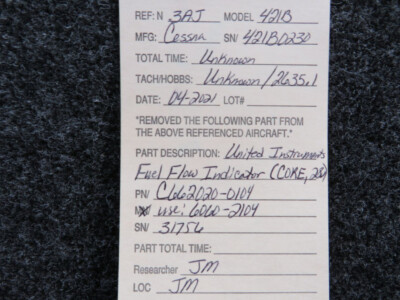 REF: N 3AJ MODEL 421B
MFG: Cessna SN/ 421B0230
TOTAL TIME: Unknown
TACH/HOBBS: Unknown/2635.1
DATE: 04-2021 LOT#
"REMOVED THE FOLLOWING PART FROM
THE ABOVE REFERENCED AIRCRAFT."
PART DESCRIPTION: United Instruments
Fuel Flow Indicator (CORE, 28V)
PN/ C662020-0104
use: 6060-2104
SN/ 31756
PART TOTAL TIME:
Researcher JM
LOC JM